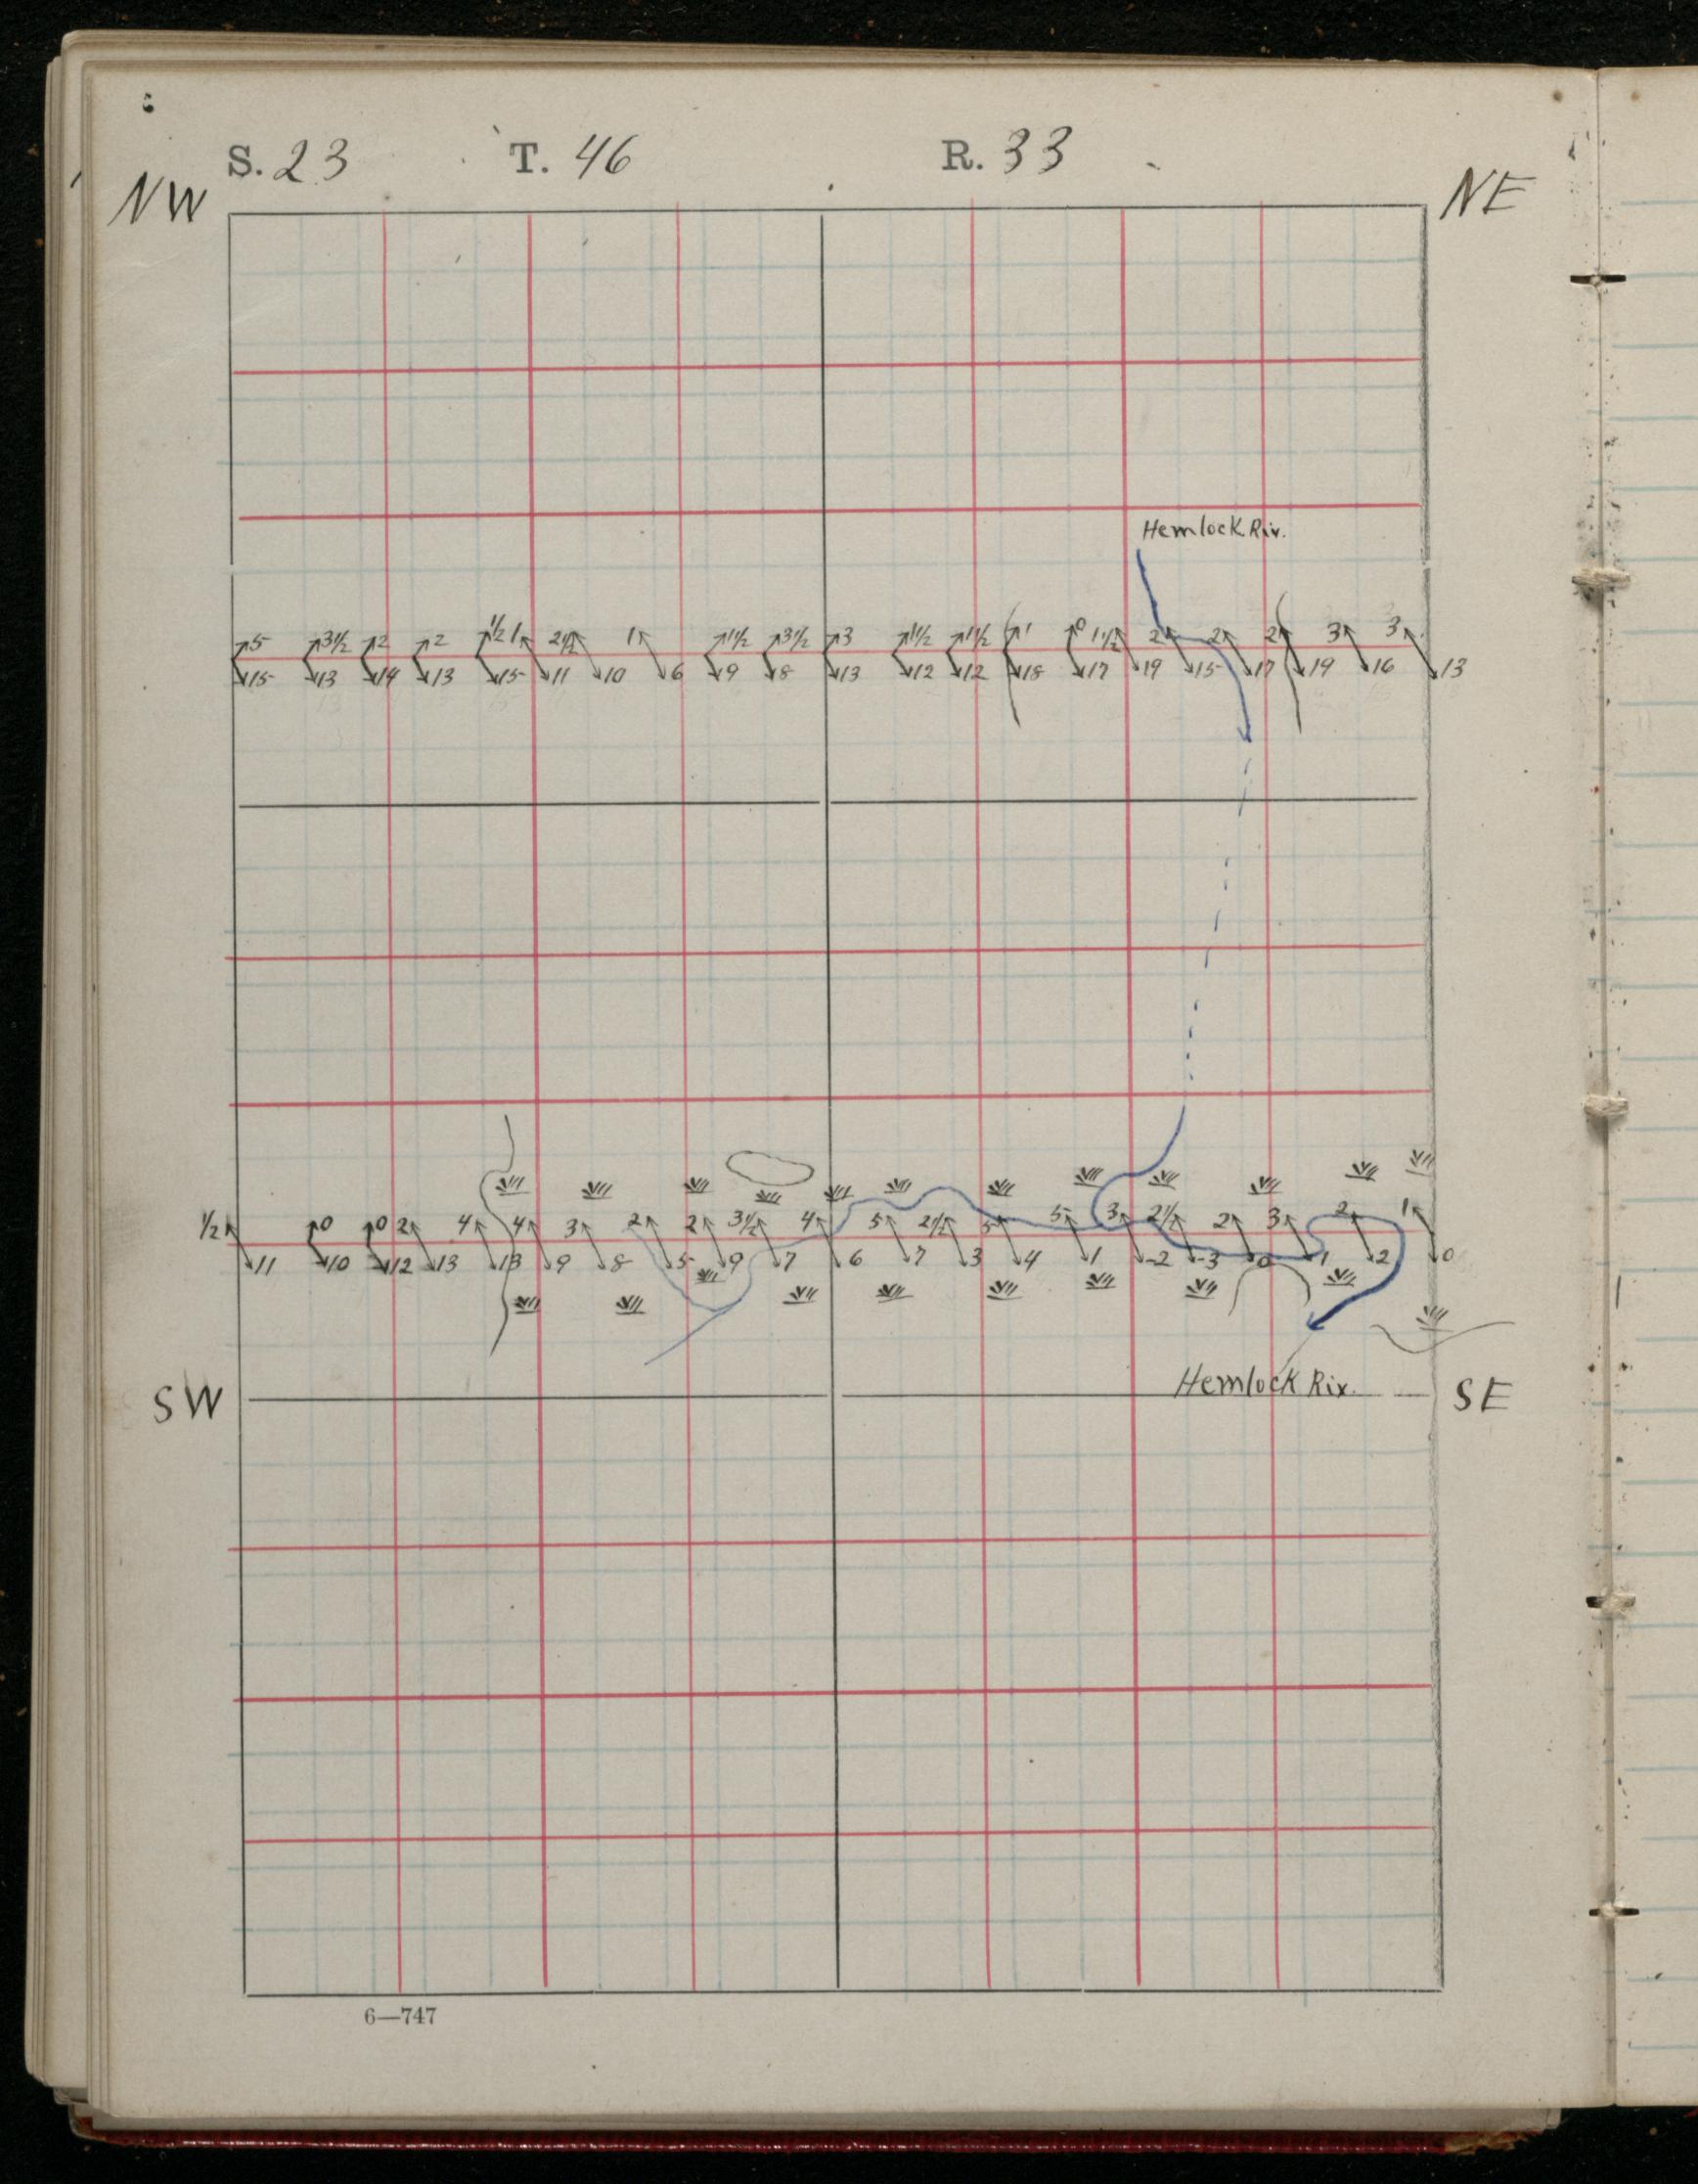 S. 23 T. 46 R. 33
NW NE
Hemlock Riv.
5 3½ 2 2 ½ 1 2½ 1 1½ 3½ 3 1½ 1½ 1 0 1½ 2 2 2 3 3
15 13 14 13 15 11 10 6 9 8 13 12 12 18 17 19 15 17 19 16 13
½ 0 0 2 4 4 3 2 2 3½ 4 5 2½ 5 5 3 2½ 2 3 2 1
11 10 12 13 13 9 8 5 9 7 6 7 3 4 1 -2 -3 0 1 2 0
SW Hemlock Riv. SE
6—747